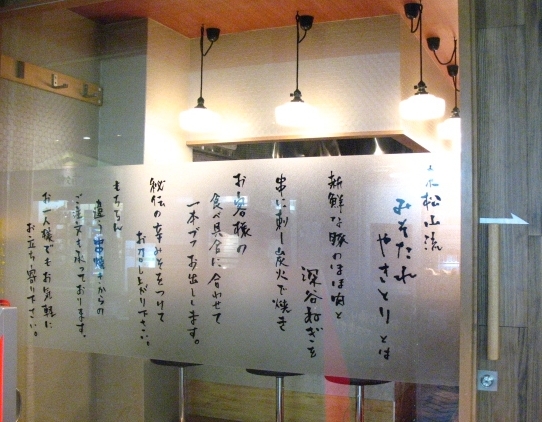 東松山流
みそだれ
やきとりとは
新鮮な豚のほほ肉と
深谷ねぎを
串に刺し炭火で焼き
お客様の
食べ具合に合わせて
一本ずつお出しします。
秘伝の辛みそをつけて
お召し上がり下さい。
もちろん
違う串焼きからの
ご注文も承っております。
お一人様でもお気軽に
お立ち寄り下さい。